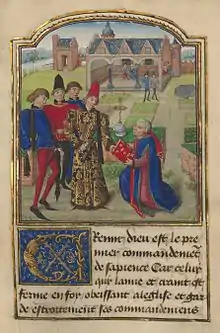 Renir dieu est le pre
mier commandement
de sapience Car celuy
qui lanne et craint est
ferme en foy obeissant aleglise et gar
de estroitement ses commandemens